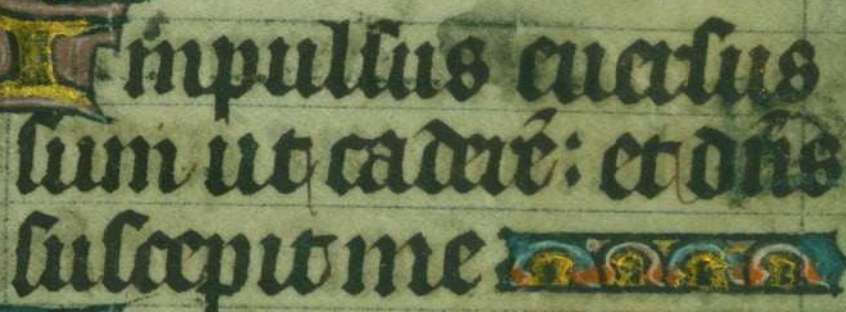 Impulsus euersus
sum ut caderē: et dn̄s
suscepit me